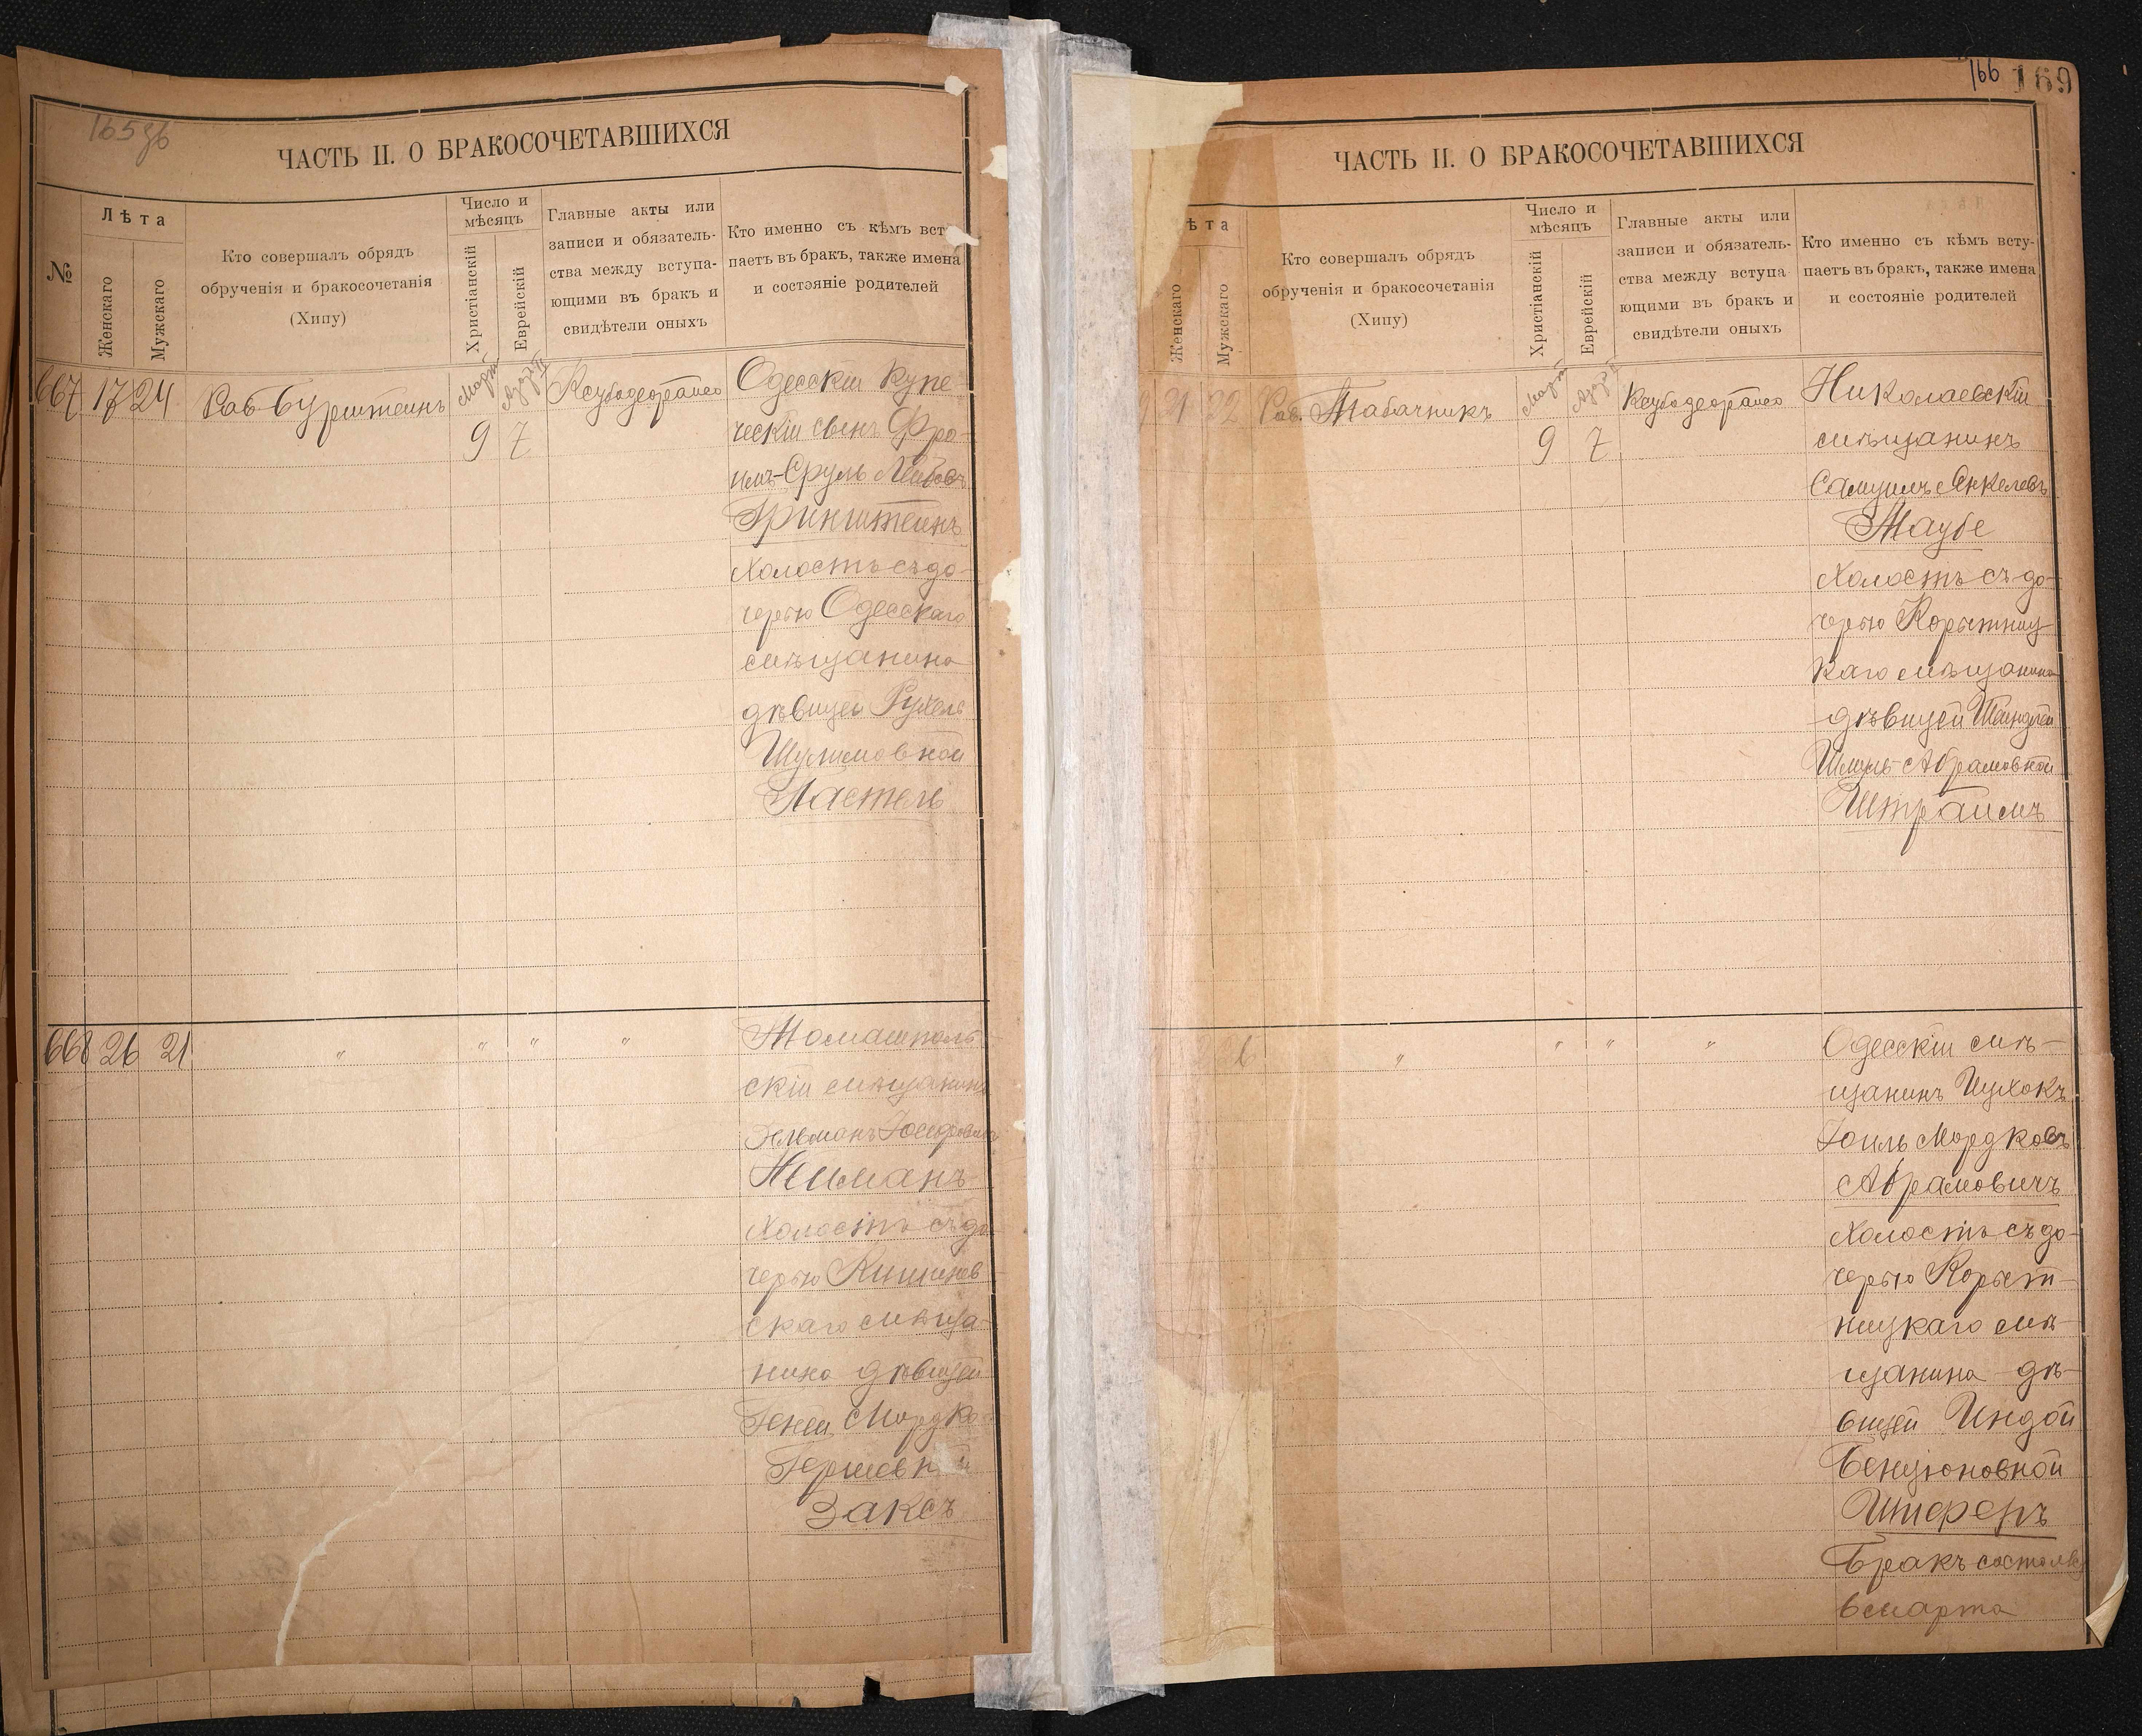 165 зв
ЧАСТЬ II. О БРАКОСОЧЕТАВШИХСЯ
№
Лѣта
Женскаго
Мужскаго
Кто совершалъ обрядъ
обрученія и бракосочетанія
(Хипу)
Число и
мѣсяцъ
Христіанскій
Еврейскій
Главные акты или
записи и обязатель-
ства между вступа-
ющими въ бракъ и
свидѣтели оныхъ
Кто именно съ кѣмъ вст
паетъ въ бракъ, также имена
и состояніе родителей
667 17 24 Раб Бурштейнъ
Мартъ
9 7
Одесскій Купе-
ческій сынъ Фро-
имъ-Сруль Лейбовъ
Гринштейнъ
холостъ съ до-
черью Одесскаго
мѣщанина
дѣвицею Рухель
Шулимовной
Пастель
668 26 21 " " " "
Томашполь-
скій мѣщанинъ
Зельманъ Іосифовичъ
Нейманъ
холостъ съ до-
черью Кишинев-
скаго мѣща-
нина дѣвицей
Геней Мордко-
Гершевн й
Заксъ
166 169
ЧАСТЬ II. О БРАКОСОЧЕТАВШИХСЯ
ѣта
Женскаго
Мужскаго
Кто совершалъ обрядъ
обрученія и бракосочетанія
(Хипу)
Число и
мѣсяцъ
Христіанскій
Еврейскій
Главные акты или
записи и обязатель-
ства между вступа
ющими въ бракъ и
свидѣтели оныхъ
Кто именно съ кѣмъ всту-
паетъ въ бракъ, также имена
и состояніе родителей
21 22 Раб. Табачникъ
Мартъ
9 7
Николаевскій
мѣщанинъ
Самуилъ Янкелевъ
Таубе
холостъ съ до-
черью Корытниц-
каго мѣщанина
дѣвицей Шейндлей
Шмуль-Абрамовной
Штраимъ
" " " "
Одесскій мѣ-
щанинъ Ицхокъ
Іоиль Мордковъ
Абрамовичъ
холостъ съ до-
черью Корыт-
ницкаго мѣ-
щанина дѣ-
вицей Индой
Бенціоновной
Штеренъ
Бракъ состоялся
6 марта